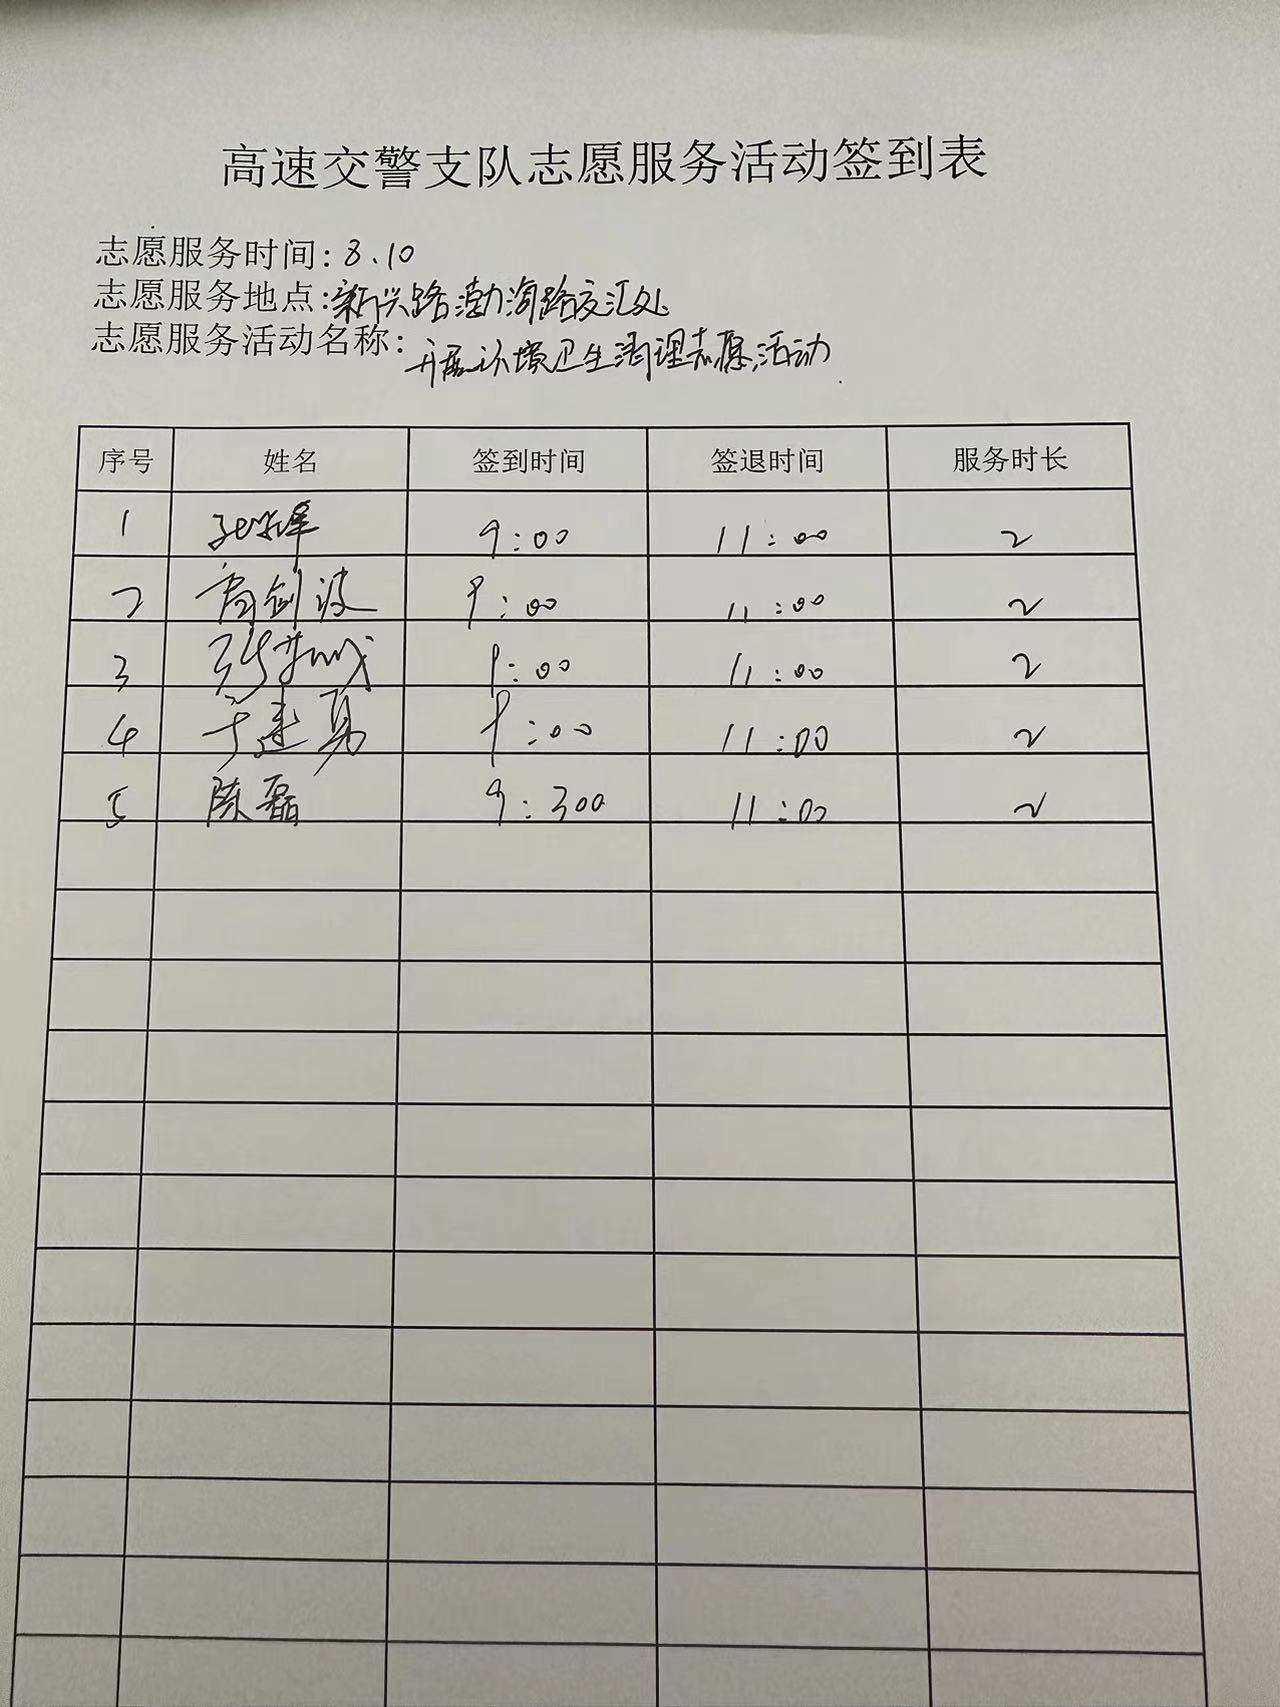 高速交警支队志愿服务活动签到表
志愿服务时间: 8.10
志愿服务地点: 新兴路渤海路交汇处
志愿服务活动名称: 开展环境卫生清理志愿活动
序号 姓名 签到时间 签退时间 服务时长
1 9:00 11:00 2
2 剑波 9:00 11:00 2
3 9:00 11:00 2
4 于建勇 9:00 11:00 2
5 陈磊 9:300 11:00 2